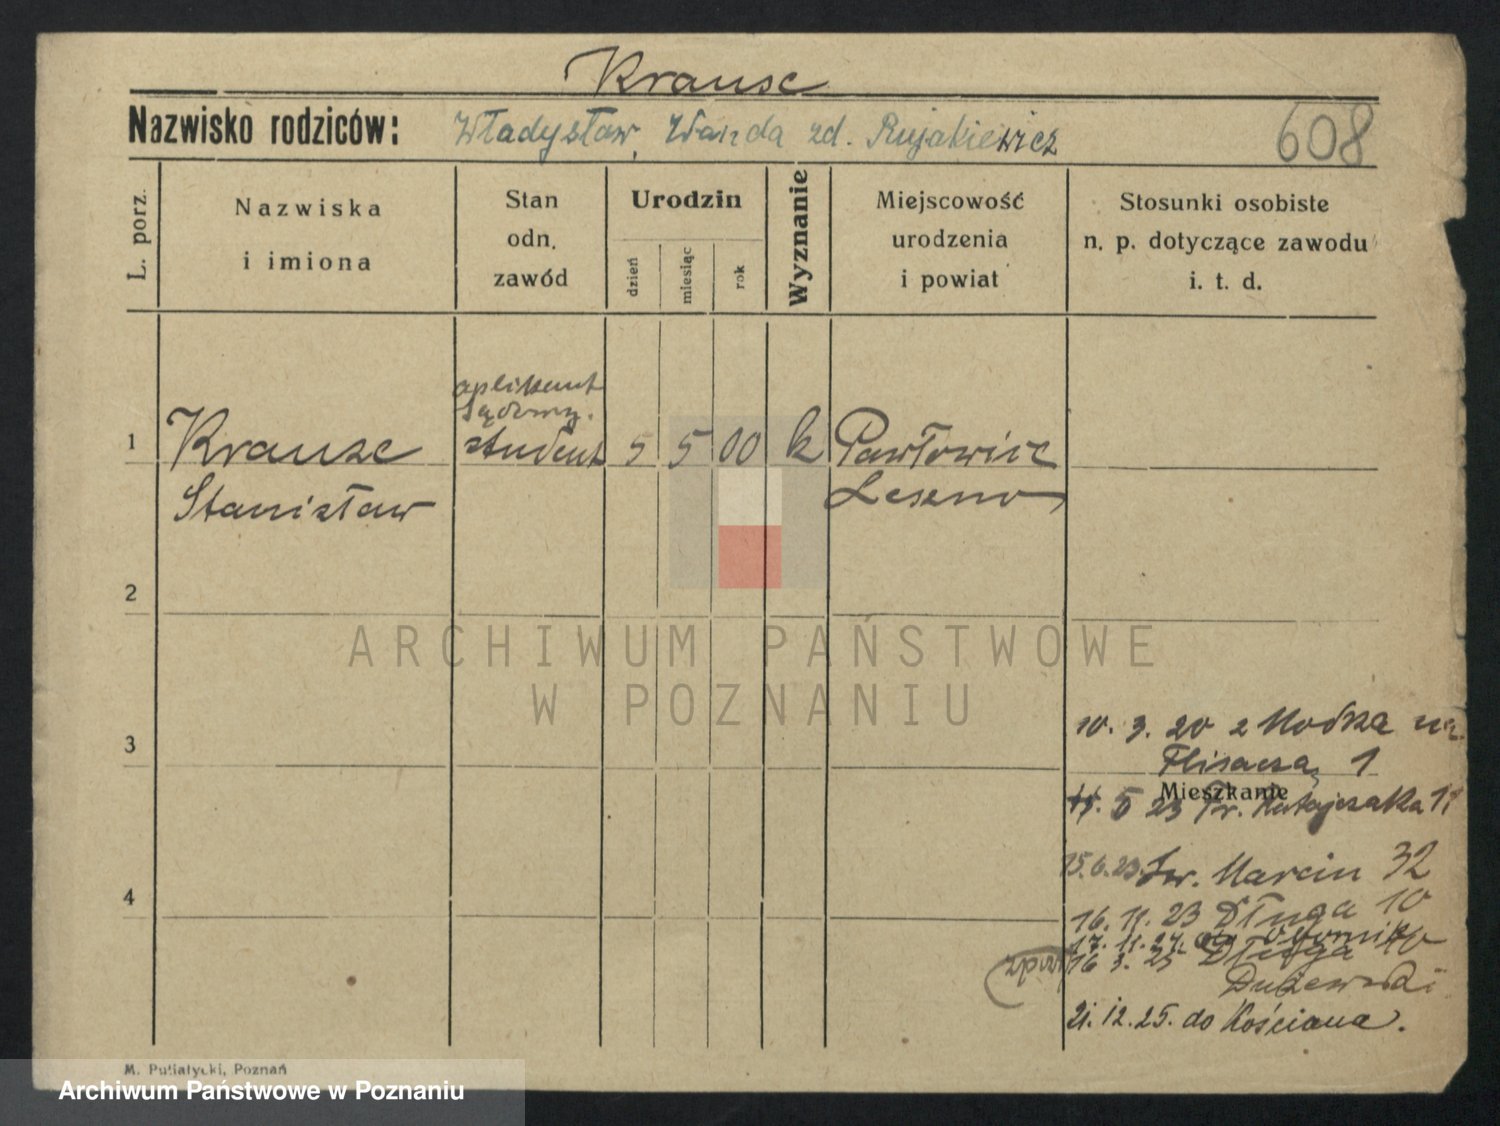 Krause
Nazwisko rodziców: Władysław, Wanda zd. Rujakiewicz 608
L. porz.
Nazwiska i imiona
Stan odn. zawód
Urodzin
dzień
miesiąc
rok
Wyznanie
Miejscowość urodzenia i powiat
Stosunki osobiste n. p. dotyczące zawodu i. t. d.
aplikant
sądowy.
1 Krause student 5 5 00 k Pawłowice
Stanisław Leszno
2
ARCHIWUM PAŃSTWOWE
W POZNANIU
3
10. 3. 20 z
Flisacza 1
Mieszkanie
5 23 Fr. Ratajczaka 11
15.6.23. Św. Marcin 32
4
16. 11. 23 Długa 10
17. 11. 24. do
16 3. 25 Długa
21. 12. 25. do Kościana.
M. Putiatycki, Poznań
Archiwum Państwowe w Poznaniu